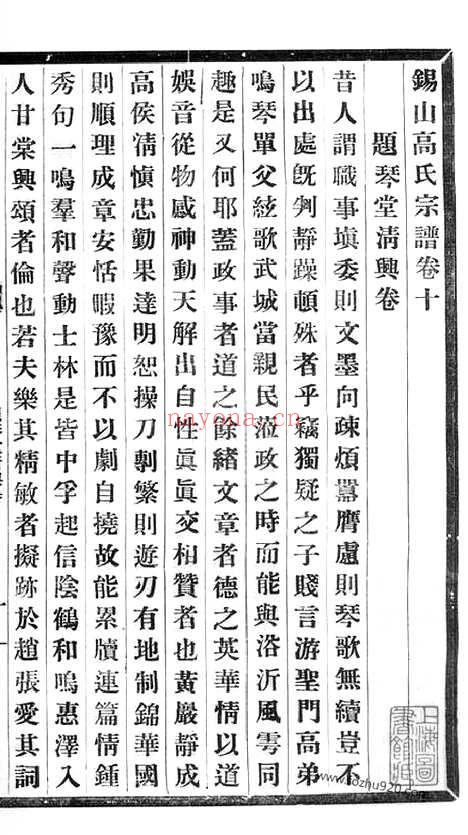 錫山高氏宗譜卷十
題琴堂清興卷
昔人謂職事填委則文墨向疎煩囂膺慮則琴歌無續豈不
以出處既判靜躁頓殊者乎竊獨疑之子賤言游聖門高弟
鳴琴單父絃歌武城當親民涖政之時而能與浴沂風雩同
趣是又何耶蓋政事者道之餘緒文章者德之英華情以道
娛音從物感神動天解出自性眞眞交相贊者也黃嚴靜成
高侯淸愼忠勤果達明恕操刀剸繁則遊刃有地制錦華國
則順理成章安恬暇豫而不以劇自撓故能累牘連篇情鍾
秀句一鳴羣和聲動士林是皆中孚起信陰鶴和鳴惠澤入
人甘棠興頌者倫也若夫樂其精敏者擬跡於趙張愛其詞
上海圖書館藏
nayona.cn
www.kozhu920.com